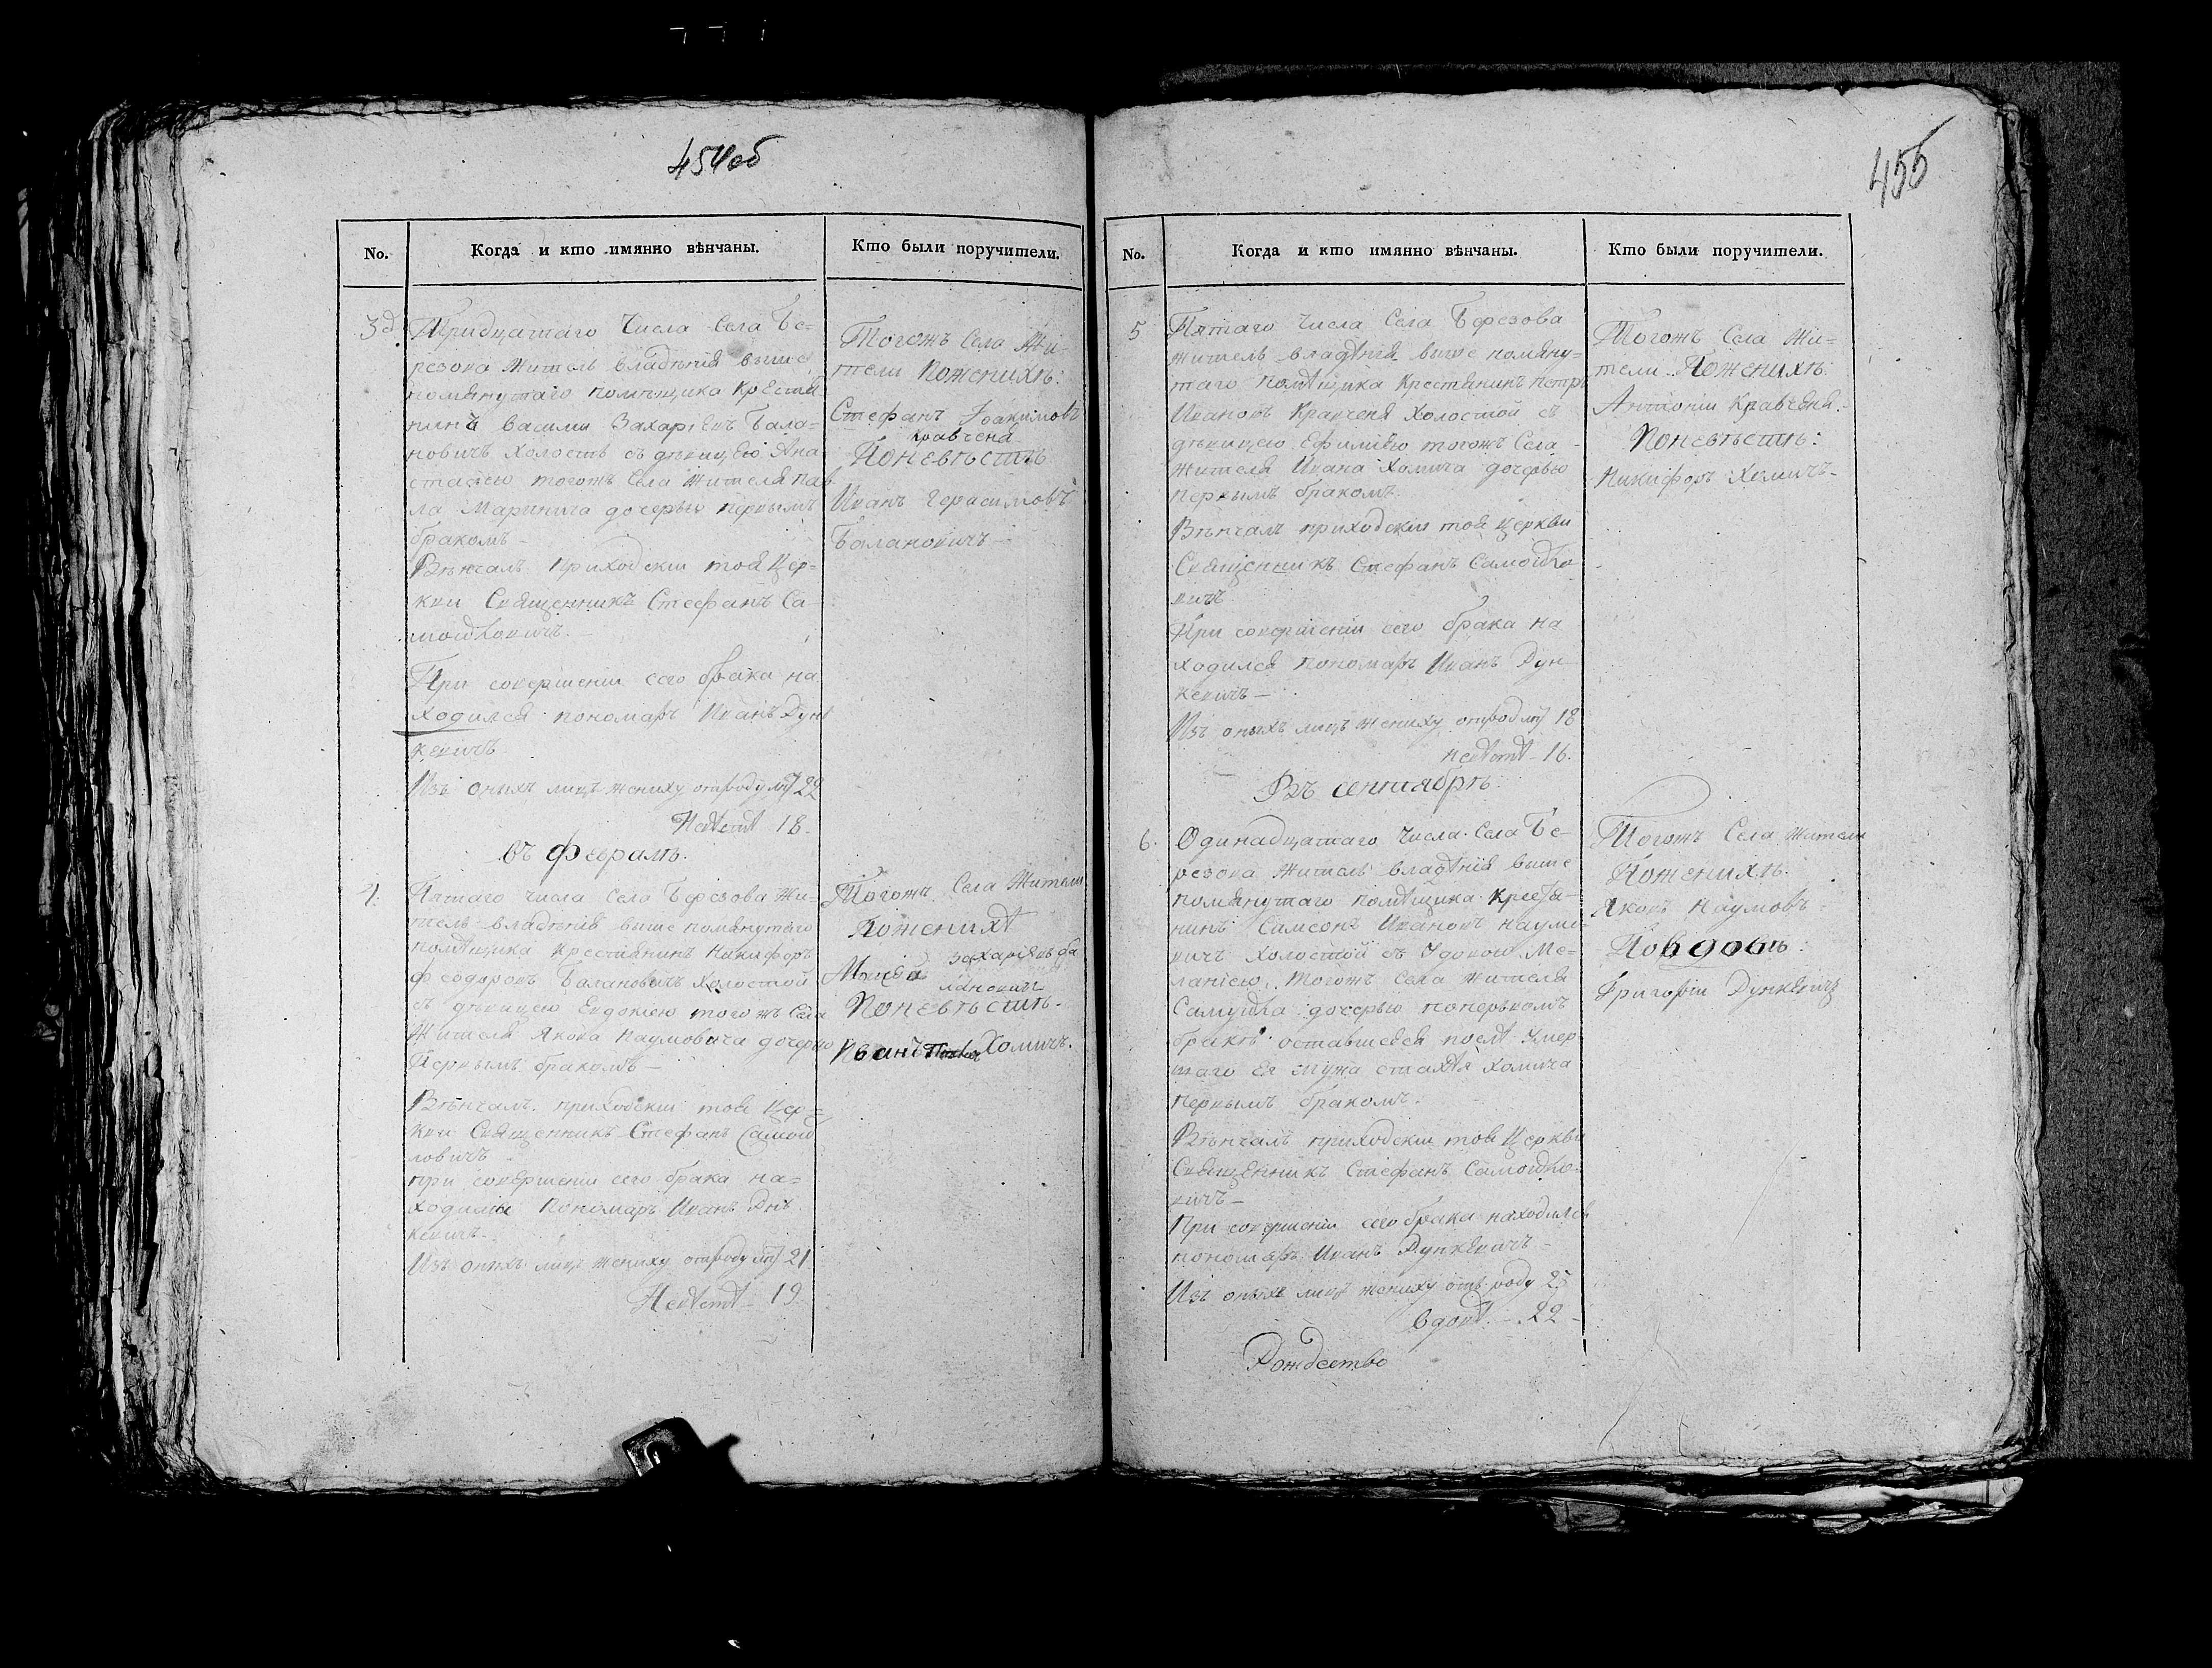 454об
No.
Когда и кто имянно вѣнчаны.
Кто были поручители.
3д
Тридцатаго Числа Села Бе-
резова Житель владѣнія выше
помянутаго помѣщика Крестья
нинъ Василій Захаріевъ Бала-
новичъ Холостъ съ дѣвицею Ана
стасіею тогожъ Села Жителя Пав
ла Маринича дочерью первымъ
бракомъ -
Вѣнчалъ Приходскій тоя Цер-
кви Священникъ Стефанъ Са
мойловичъ. -
При совершеніи сего брака на
ходился пономарь Иванъ Дун
кевичъ
Изъ оныхъ лицъ жениху отроду лѣт 22
Невѣстѣ 18.
Тогожъ Села Жи-
тели Поженихѣ:
Стефанъ Іоакимовъ
Кравченя
Поневѣстѣ
Иванъ Герасимовъ
Балановичъ -
въ Февралѣ.
4.
Пятаго числа Села Березова Жи-
тель владѣнія выше помянутаго
помѣщика Крестіянинъ Никифоръ
Феодоровъ Балановичъ Холостой
съ дѣвицею Евдокіею тогожъ Села
Жителя Якова Наумовича дочерью
Первымъ бракомъ -
Вѣнчалъ приходскій тоя Цер-
кви Священникъ Стефанъ Самой
ловичъ
при совершеніи сего брака на-
ходился Пономарь Иванъ Дн
кевичъ.
Изъ оныхъ лицъ жениху отроду лѣт 21
Невѣстѣ - 19.
Тогожъ Села Жители
Поженихѣ
захаріевъ ба
лановичъ
Поневѣстѣ.
Иванъ Хомичъ.
455
No.
Когда и кто имянно вѣнчаны.
Кто были поручители.
5
Пятаго Числа Села Березова
житель владѣнія выше помяну-
таго помѣщика Крестянинъ Петръ
Ивановъ Кравченя Холостой съ
дѣвицею Ефиміею тогожъ Села
Жителя Ивана Хомича дочерью
Первымъ бракомъ.
Вѣнчалъ приходскій тоя Церкви
Священникъ Стефанъ Самойло
вичъ
При совершеніи сего брака на
ходился пономарь Иванъ Дун
кевичъ -
Изъ оныхъ лицъ жениху отрод лѣт 18
невѣстѣ - 16.
Тогожъ Села Жи-
тели Поженихѣ:
Антоній Кравченя.
Поневѣстѣ:
Никифоръ Хомичъ -
Въ сентябрѣ.
6.
Одинадцатаго Числа Села Бе-
резова Житель владѣнія выше
помянутаго помѣщика Крестья-
нинъ Самсонъ Ивановъ Наумо
вичъ Холостой съ Удовою Ме-
ланіею, Тогожъ Села Жителя
Самуйла дочерью поперьвомъ
бракѣ оставшеяся послѣ Умер
шаго Ея мужа Хомича
первымъ бракомъ.
Вѣнчалъ приходскій тоя Церкви
Священникъ Стефанъ Самойло
вичъ -
При совершеніи сего брака находился
пономарь Иванъ Дункевичъ -
Изъ оныхъ лицъ жениху отъ роду 25
вдовѣ. - 22 -
Тогожъ Села Жители
Поженихѣ.
Яковъ Наумовъ -
Повдовѣ:
Григорій Дункевичъ
Рождество